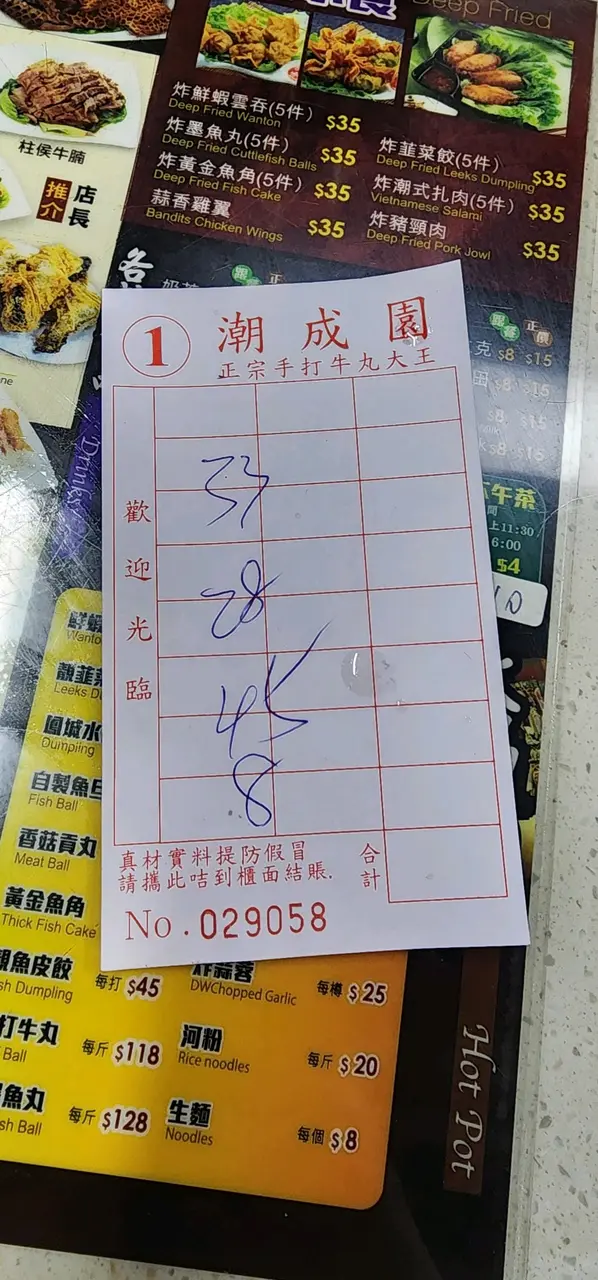 Deep Fried
炸鮮蝦雲吞(5件) $35
Deep Fried Wanton
炸墨魚丸(5件) $35
Deep Fried Cuttlefish Balls
炸黃金魚角(5件) $35
Deep Fried Fish Cake
蒜香雞翼 $35
Bandits Chicken Wings
炸韮菜餃(5件) $35
Deep Fried Leeks Dumpling
炸潮式扎肉(5件) $35
Vietnamese Salami
炸豬頸肉 $35
Deep Fried Pork Jowl
柱侯牛腩
店長
推介
跟餐 正價
克 $8 $15
田 $8 $15
$8 $15
Drinks
午茶
上11:30
6:00
$4
1 潮成園
正宗手打牛丸大王
歡迎光臨
28
45
8
真材實料提防假冒
請攜此咭到櫃面結賬.
合計
No.029058
Leeks D
鳳城水
Dumpling
自製魚旦
Fish Ball
香菇貢丸
Meat Ball
黃金魚角
Thick Fish Cake
魚皮餃 每打 $45
sh Dumpling
炸蒜蓉 每樽 $25
DWChopped Garlic
打牛丸 每斤 $118
Ball
河粉 每斤 $20
Rice noodles
魚丸 每斤 $128
sh Ball
生麵 每個 $8
Noodles
Hot Pot